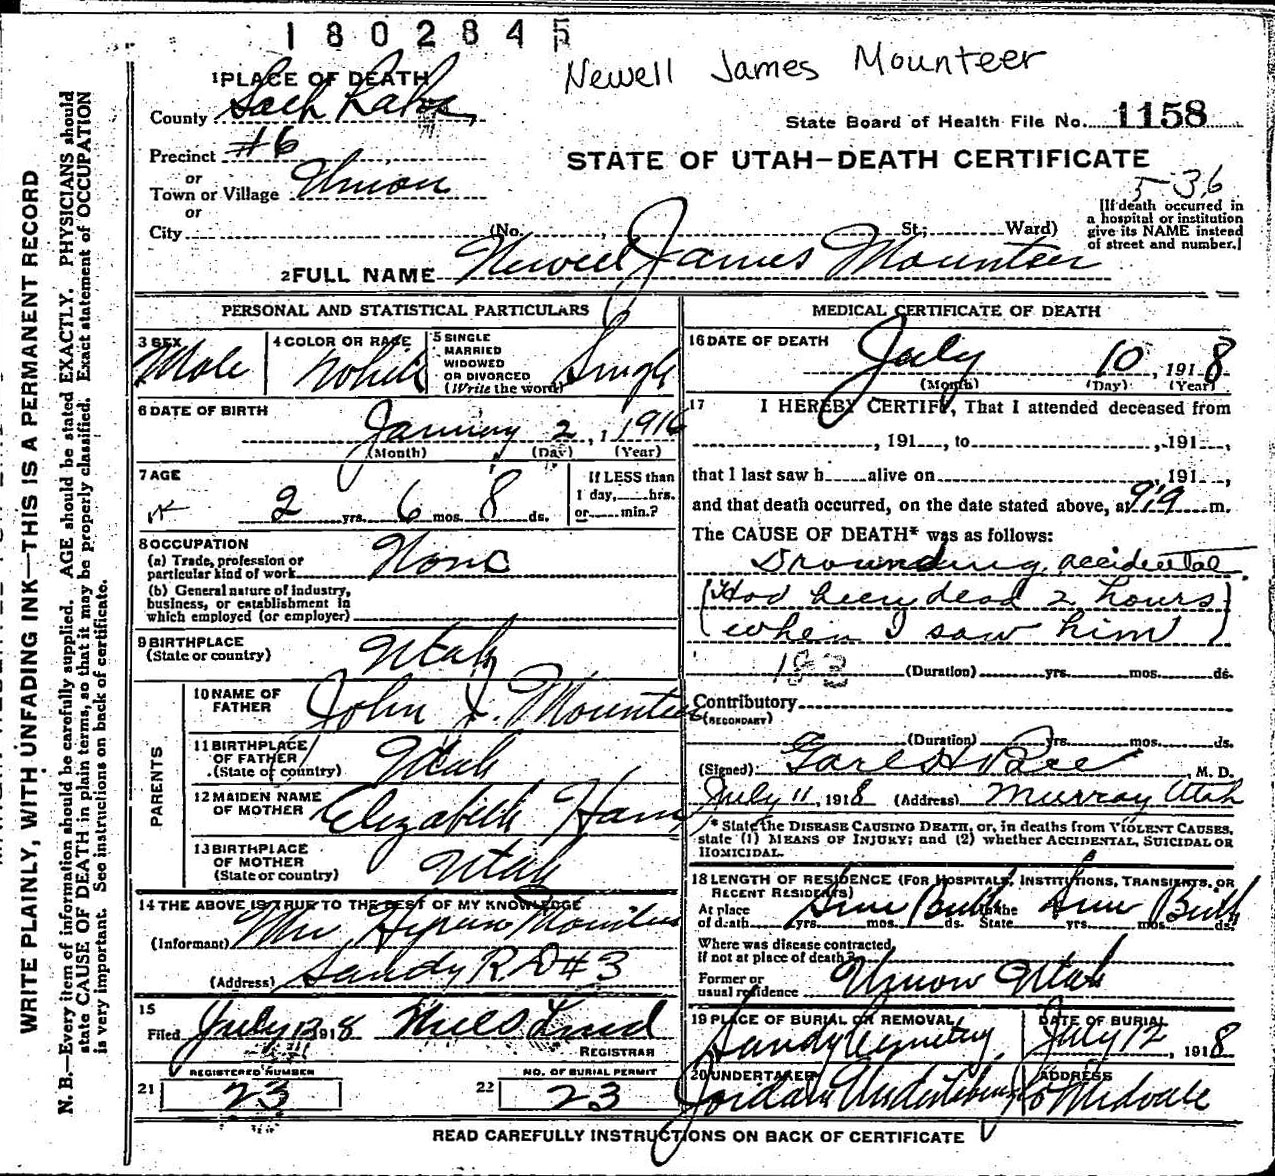 1802845
Newell James Mounteer
1 PLACE OF DEATH
County Salt Lake
State Board of Health File No. 1158
Precinct #6
STATE OF UTAH—DEATH CERTIFICATE
or
Town or Village Union
5-36
or
[If death occurred in a hospital or institution give its NAME instead of street and number.]
City (No. , St.; Ward)
2 FULL NAME Newell James Mounteer
PERSONAL AND STATISTICAL PARTICULARS
3 SEX Male
4 COLOR OR RACE White
5 SINGLE MARRIED WIDOWED OR DIVORCED (Write the word) Single
6 DATE OF BIRTH
January 2, 1916
(Month) (Day) (Year)
7 AGE
2 yrs. 6 mos. 8 ds.
If LESS than 1 day, hrs. or min.?
8 OCCUPATION
(a) Trade, profession or particular kind of work None
(b) General nature of industry, business, or establishment in which employed (or employer)
9 BIRTHPLACE
(State or country) Utah
PARENTS
10 NAME OF FATHER John J. Mounteer
11 BIRTHPLACE OF FATHER (State or country) Utah
12 MAIDEN NAME OF MOTHER Elizabeth Ham
13 BIRTHPLACE OF MOTHER (State or country) Utah
14 THE ABOVE IS TRUE TO THE BEST OF MY KNOWLEDGE
(Informant) Mr. Hyrum
(Address) Sandy R D #3
15
Filed July 1918
REGISTRAR
REGISTERED NUMBER
21 23
NO. OF BURIAL PERMIT
22 23
MEDICAL CERTIFICATE OF DEATH
16 DATE OF DEATH
July 10, 1918
(Month) (Day) (Year)
17 I HEREBY CERTIFY, That I attended deceased from
, 191 , to , 191 ,
that I last saw h alive on 191 ,
and that death occurred, on the date stated above, at m.
The CAUSE OF DEATH* was as follows:
Drownding, accidental.
(Had been dead 2 hours
when I saw him)
183 (Duration) yrs. mos. ds.
Contributory
(SECONDARY)
(Duration) yrs. mos. ds.
(Signed) , M. D.
July 11, 1918 (Address) Murray Utah
* State the DISEASE CAUSING DEATH, or, in deaths from VIOLENT CAUSES,
state (1) MEANS OF INJURY; and (2) whether ACCIDENTAL, SUICIDAL OR
HOMICIDAL.
18 LENGTH OF RESIDENCE (FOR HOSPITALS, INSTITUTIONS, TRANSIENTS, OR
RECENT RESIDENTS)
At place of death Since Birth yrs. mos. ds. In the State Since Birth yrs. mos. ds.
Where was disease contracted, if not at place of death?
Former or usual residence Union Utah
19 PLACE OF BURIAL OR REMOVAL Sandy Cemetery
DATE OF BURIAL July 12, 1918
20 UNDERTAKER Jordan Undertaking Co
ADDRESS Midvale
READ CAREFULLY INSTRUCTIONS ON BACK OF CERTIFICATE
WRITE PLAINLY, WITH UNFADING INK—THIS IS A PERMANENT RECORD
N. B.—Every item of information should be carefully supplied. AGE should be stated EXACTLY. PHYSICIANS should
state CAUSE OF DEATH in plain terms, so that it may be properly classified. Exact statement of OCCUPATION
is very important. See instructions on back of certificate.